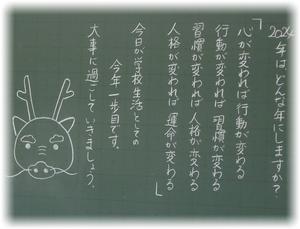 2024年は どんな年にしますか？
「心が変われば行動が変わる
行動が変われば 習慣が変わる
習慣が変われば 人格が変わる
人格が変われば 運命が変わる」
今日が学校生活としての
今年一歩目です。
大事に過ごしていきましょう。